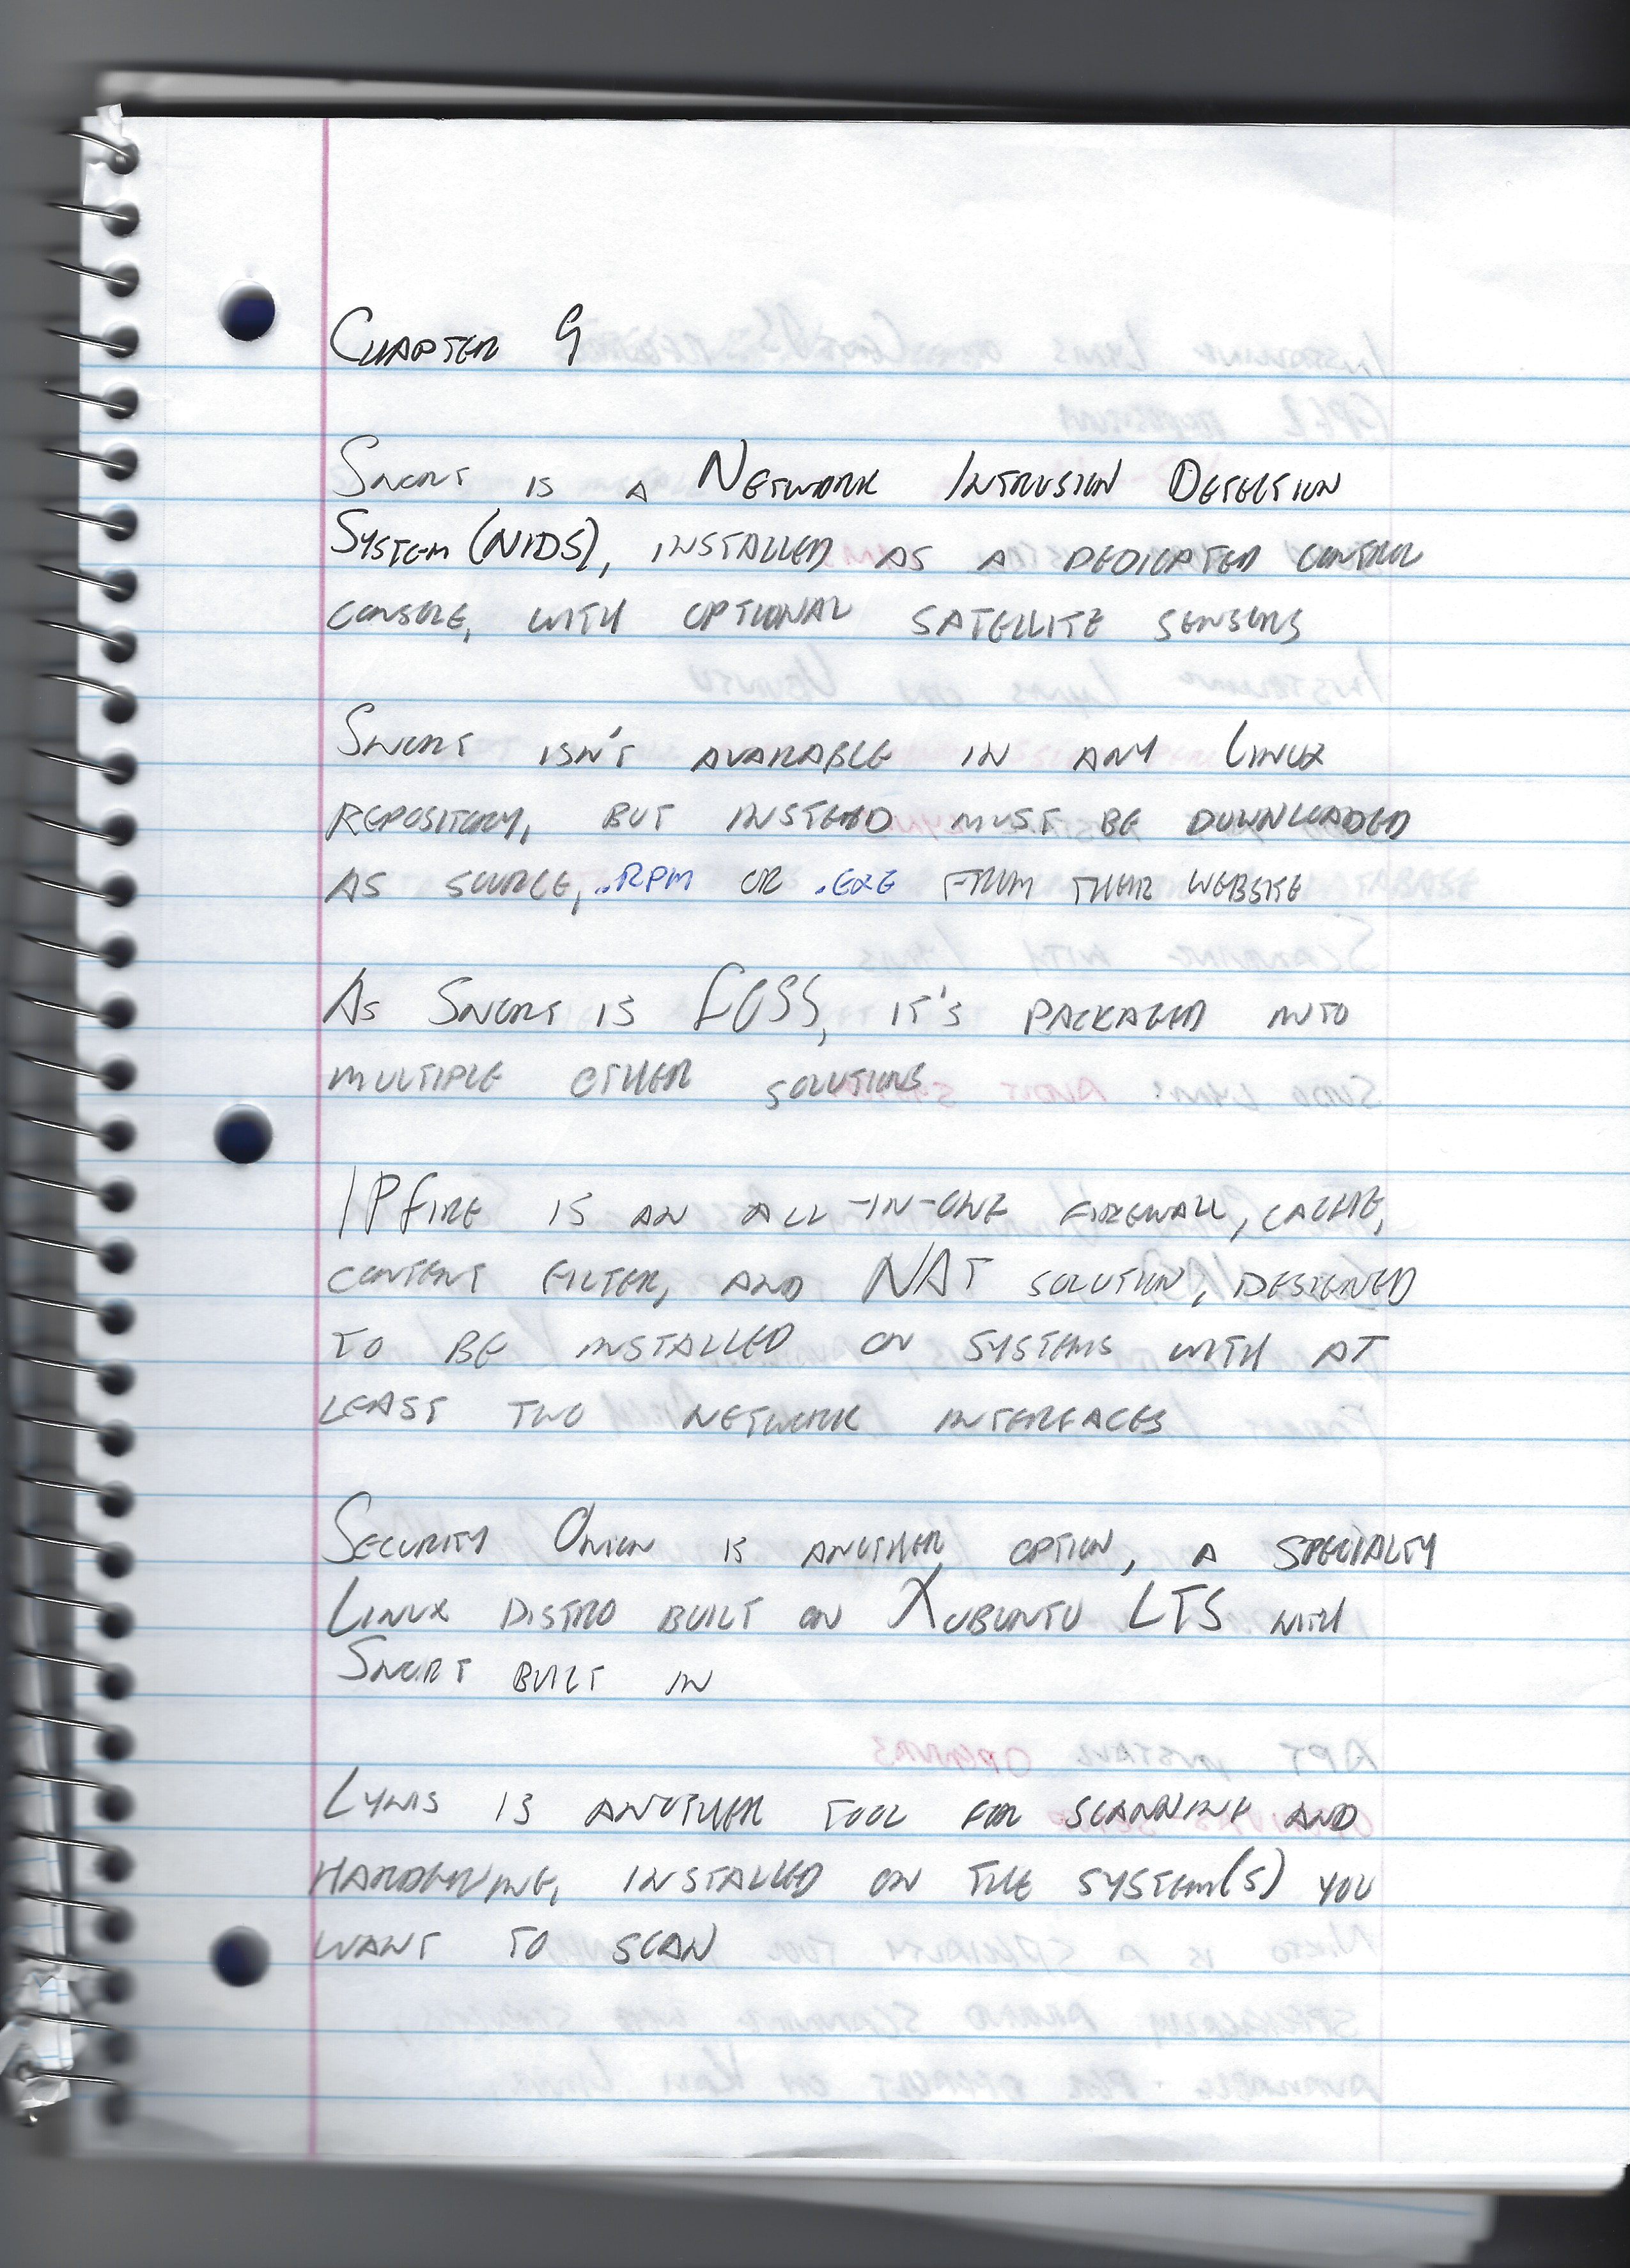 Chapter 9
Snort is a Network Intrusion Detection
System (NIDS), installed as a dedicated control
console, with optional satellite sensors
Snort isn't available in any Linux
repository, but instead must be downloaded
as source, .rpm or .exe from their website
As Snort is FOSS, it's packaged into
multiple other solutions
IPFire is an all-in-one firewall, cache,
content filter, and NAT solution, designed
to be installed on systems with at
least two network interfaces
Security Onion is another option, a specialty
Linux distro built on Xubuntu LTS with
Snort built in
Lynis is another tool for scanning and
hardening, installed on the system(s) you
want to scan